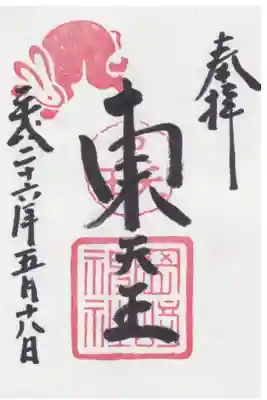 奉拝
東天王
岡崎神社
平成二十六年五月十八日